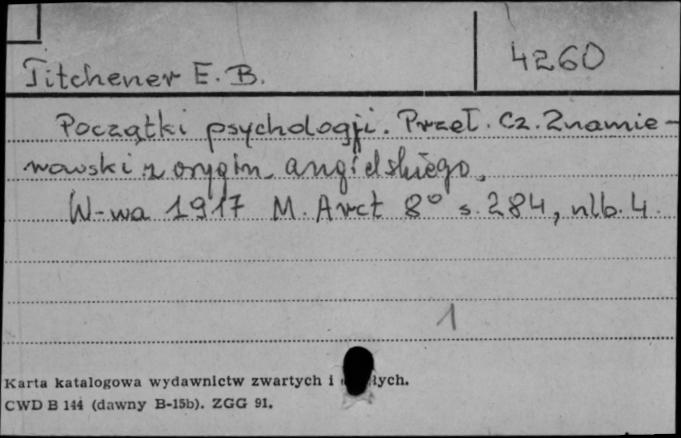 Titchener E. B.
4260
Początki psychologji. Przeł. Cz. Znamie-
rowski z orygin. angielskiego.
W-wa 1917 M. Arct 8° s. 284, nlb. 4.
1
Karta katalogowa wydawnictw zwartych i
CWD B 144 (dawny B-15b). ZGG 91.